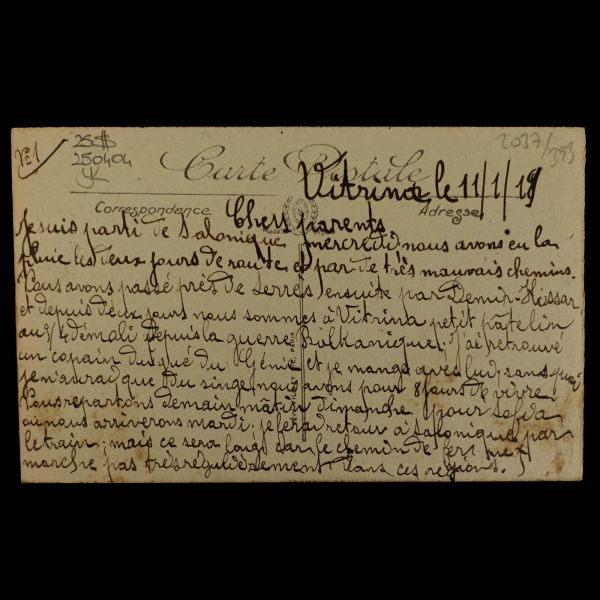 No 1
250404
2037/393
Carte Postale
Vitrina le 11/1/19
Correspondance
Adresse
Chers parents
Je suis parti de Salonique mercredi nous avons eu la
pluie les deux jours de route et par de très mauvais chemins.
Nous avons passé près de Serrès ensuite par Demir-Hissar
et depuis deux jours nous sommes à Vitrina petit patelin
au 3/4 démoli depuis la guerre Balkanique; j'ai retrouvé
un copain du Génie et je mange avec lui, sans quoi
je n'aurai que du singe, nous avons pour 8 jours de vivre.
Nous repartons demain matin dimanche pour Sofia
où nous arriverons mardi. je ferai retour à Salonique par
le train; mais ce sera long car le chemin de fers ne
marche pas très régulièrement dans ces régions.